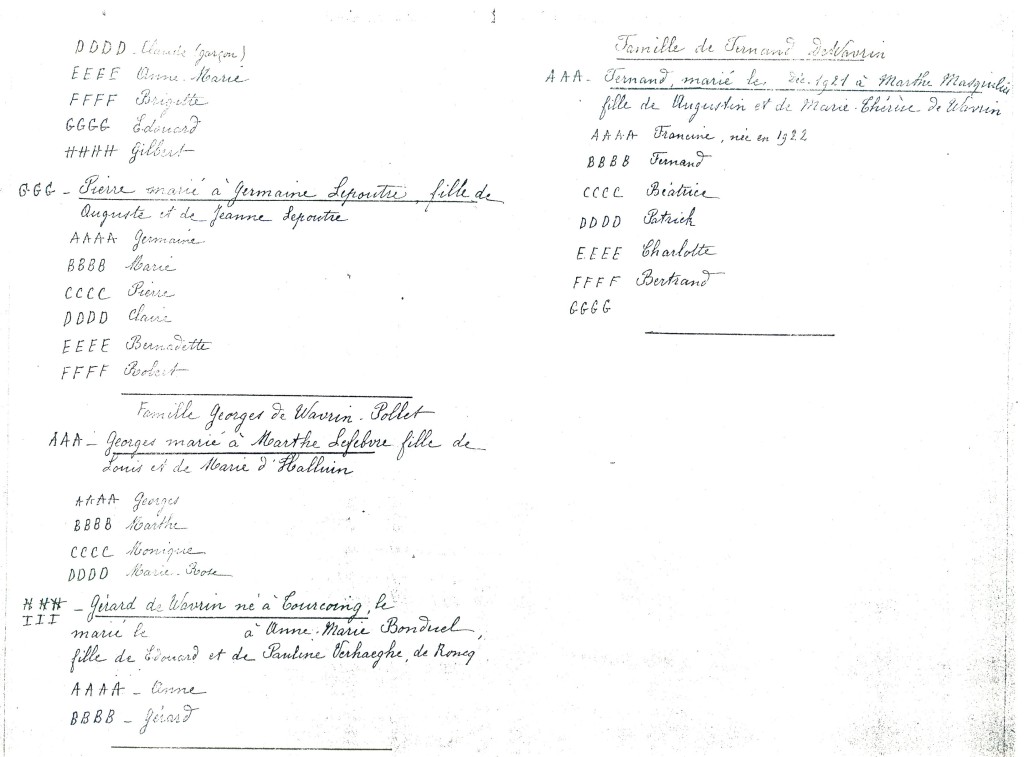 DDDD - Claude (garçon)
EEEE Anne-Marie
FFFF Brigitte
GGGG Edouard
HHHH Gilbert
GGG - Pierre marié à Germaine Lepoutre, fille de
Auguste et de Jeanne Lepoutre
AAAA Germaine
BBBB Marie
CCCC Pierre
DDDD Claire
EEEE Bernadette
FFFF Robert
Famille Georges de Wavrin-Pollet
AAA - Georges marié à Marthe Lefebvre fille de
Louis et de Marie d'Halluin
AAAA Georges
BBBB Marthe
CCCC Monique
DDDD Marie-Rose
HHH - Gérard de Wavrin né à Tourcoing, le
III
marié le à Anne-Marie Bonduel,
fille de Edouard et de Pauline Verhaeghe, de Roncq
AAAA - Anne
BBBB - Gérard
Famille de Fernand DeWavrin
AAA - Fernand, marié le Déc. 1921 à Marthe Masquilier
fille de Augustin et de Marie-Thérèse de Wavrin
AAAA Francine, née en 1922
BBBB Fernand
CCCC Béatrice
DDDD Patrick
EEEE Charlotte
FFFF Bertrand
GGGG